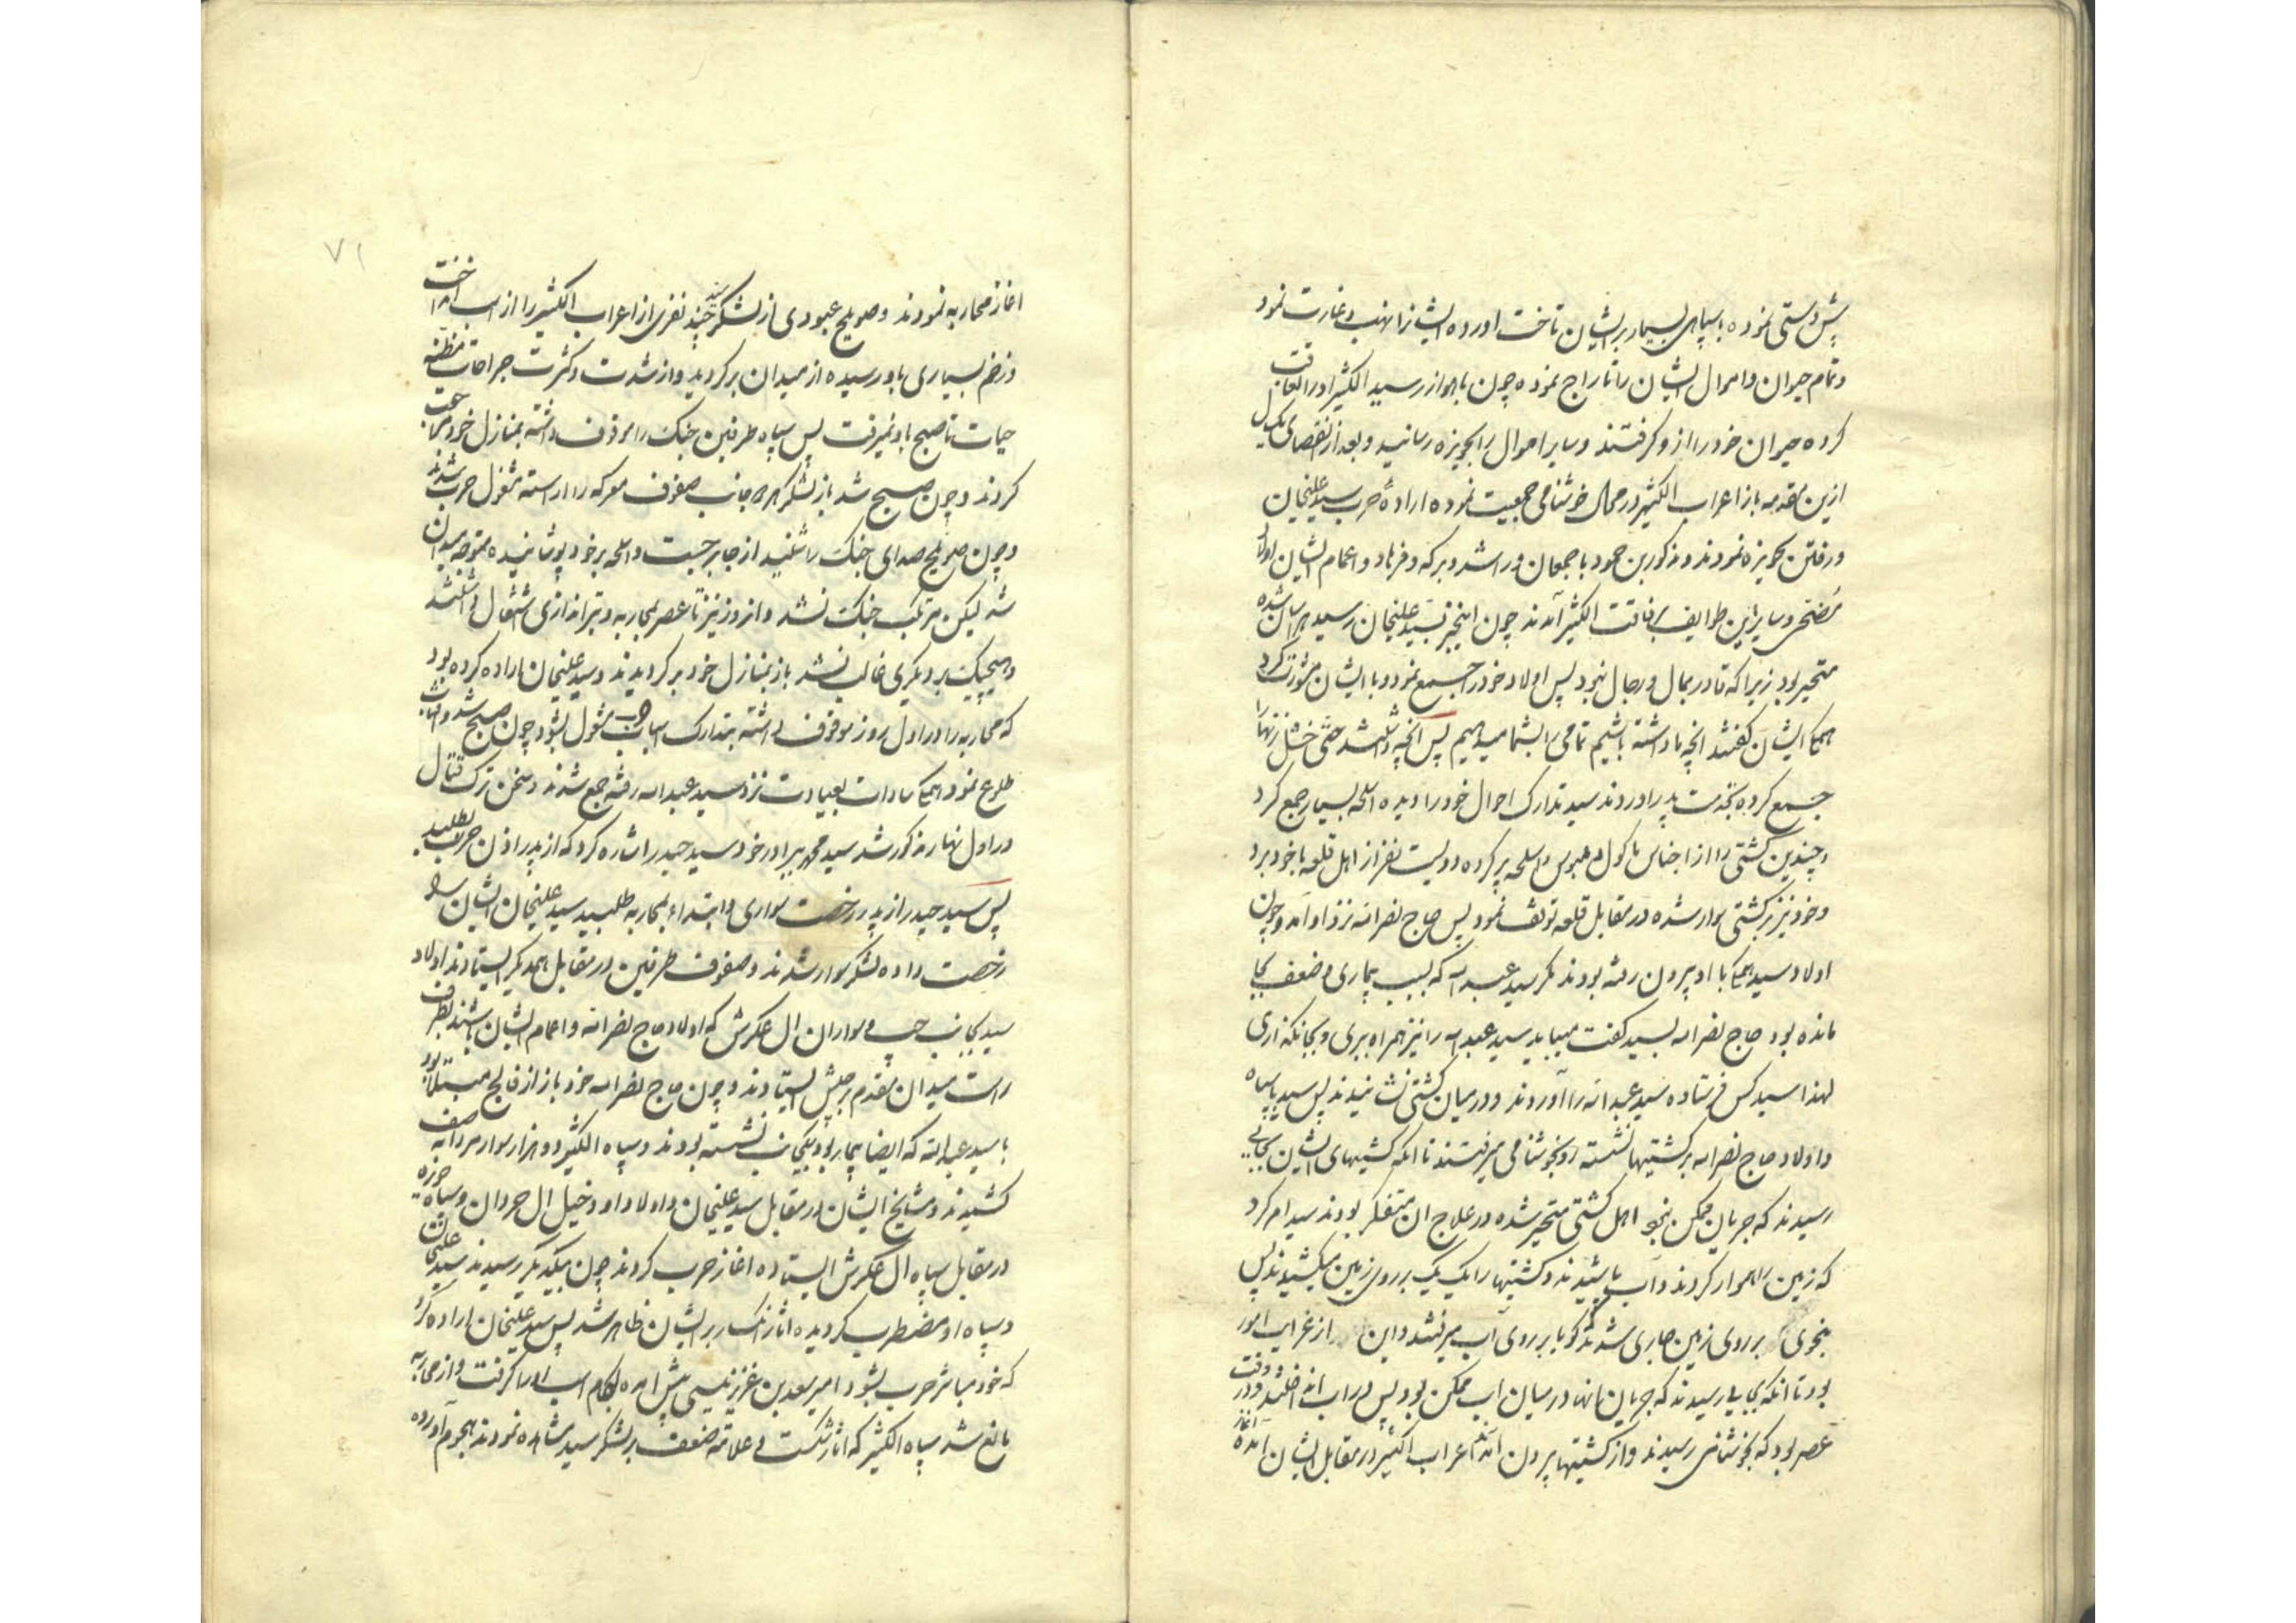 پیش دستی نموده با سپاهی بسیار بر ایشان تاخت اورده ایشانرا نهب و غارت نمود
و تمام حیوان و اموال ایشان را تاراج نموده چون باهواز رسید الکثیر او را لحاقت
کرده حیوان خود را از و کرفتند و سایر اموال را بحویزه رسانید و بعد از انقضای یکسال
ازین مقدمه باز اعراب الکثیر در محال خوشنامی جمعیت نموده ارادهٔ حرب سید علیخان
و رفتن بحویزه نمودند و مذکور بن حمود با جمعان و راشد و برکه و فرهاد و اعمام ایشان اولاد
مضحی و سایر این طوایف برفاقت الکثیر آمدند چون اینخبر بسید علیخان رسید هراسان شده
متحیر بود زیرا که قادر بمال و رجال نبود پس اولاد خود را جمع نمود و با ایشان مشورت کرد
همکی ایشان کفتند انچه ما داشته باشیم تمامی را بشما میدهیم پس انچه داشتند حتی خلخال زنها را
جمع کرده بخدمت پدر اوردند سید تدارک احوال خود را دیده اسلحه بسیار جمع کرد
و چندین کشتی را از اجناس ماکول و ملبوس و اسلحه پر کرده دویست نفر از اهل قلعه با خود برد
و خود نیز بر کشتی سوار شده در مقابل قلعه توقف نمود پس حاج نصرالله نزد او آمد و چون
اولاد سید همکی با او بیرون رفته بودند مکر سید عبدالله که بسبب بیماری و ضعف بجا
مانده بود حاج نصرالله بسید کفت میباید سید عبدالله را نیز همراه ببری و بجا نکذاری
لهذا سید کس فرستاده سید عبدالله را آوردند و در میان کشتی نشانیدند پس سید با سپاه
و اولاد حاج نصرالله بر کشتیها نشسته رو بخوشنامی میرفتند تا انکه کشتیهای ایشان بجایی
رسیدند که جریان ممکن نبود اهل کشتی متحیر شده در علاج ان متفکر بودند سید امر کرد
که زمین را هموار کردند و آب پاشیدند و کشتیها را یک یک بر روی زمین میکشیدند پس
بنحوی بر روی زمین جاری شدند که کویا بر روی آب میرفتند و این از غرایب امور
بود تا انکه بجایی رسیدند که جریان انها در میان آب ممکن بود پس در آب انداختند و در وقت
عصر بود که بخوشنامی رسیدند و از کشتیها بیرون آمدند اعراب الکثیر در مقابل ایشان امده آغاز
۷۱
اغاز محاربه نمودند و صویلح عبودی از لشکر سید چند نفری از اعراب الکثیر را از اسب انداخت
و زخم بسیاری باو رسیده از میدان برکردید و از شدت و کثرت جراحات مظنه
حیات تا صبح باو نمیرفت پس سپاه طرفین جنک را موقوف داشته بمنازل خود مراجعت
کردند و چون صبح شد باز لشکر هر دو جانب صفوف معرکه را اراسته مشغول حرب شدند
و چون صویلح صدای جنک را شنید از جا برجست و اسلحه بر خود پوشانیده متوجه میدان
شد لیکن مرتکب جنک نشد و انروز نیز تا عصر بمحاربه و تیراندازی اشتغال داشتند
و هیچیک بر دیکری غالب نشد باز بمنازل خود برکردیدند و سید علیخان اراده کرده بود
که محاربه را در اول روز موقوف داشته بتدارک اسباب حرب مشغول بشود چون صبح شد و افتاب
طلوع نمود همکی سادات بعیادت نزد سید عبدالله رفته جمع شدند و سخن ترک قتال
در اول نهار مذکور شد سید محمد ببرادر خود سید حیدر اشاره کرد که از پدر اذن حرب بطلبد
پس سید حیدر از پدر رخصت سواری و ابتداء بمحاربه طلبید سید علیخان ایشان را
رخصت داده لشکر سوار شدند و صفوف طرفین در مقابل همدیکر ایستادند اولاد
سید بجانب چپ و سواران ال عکرش که اولاد حاج نصرالله و اعمام ایشان باشند بطرف
راست میدان مقدم جیش ایستادند و چون حاج نصرالله خود باز از فالج مبتلا بود
با سید عبدالله که ایضا بیمار بود بیکجانب نشسته بودند و سپاه الکثیر دو هزار سوار مردانه صف
کشیدند و مشایخ ایشان در مقابل سید علیخان و اولاد او و خیل ال حردان و سپاه حویزه
در مقابل سپاه ال عکرش ایستاده اغاز حرب کردند چون بیکدیکر رسیدند سید علیخان
و سپاه او مضطرب کردیده اثار انکسار بر ایشان ظاهر شد پس سید علیخان اراده کرد
که خود مباشر حرب بشود امیر سعد بن عزیز نیسی پیش امده لجام اسب او را کرفت و از محاربه
مانع شد سپاه الکثیر که اثار شکست و علامت ضعف بر لشکر سید مشاهده نمودند هجوم آورده